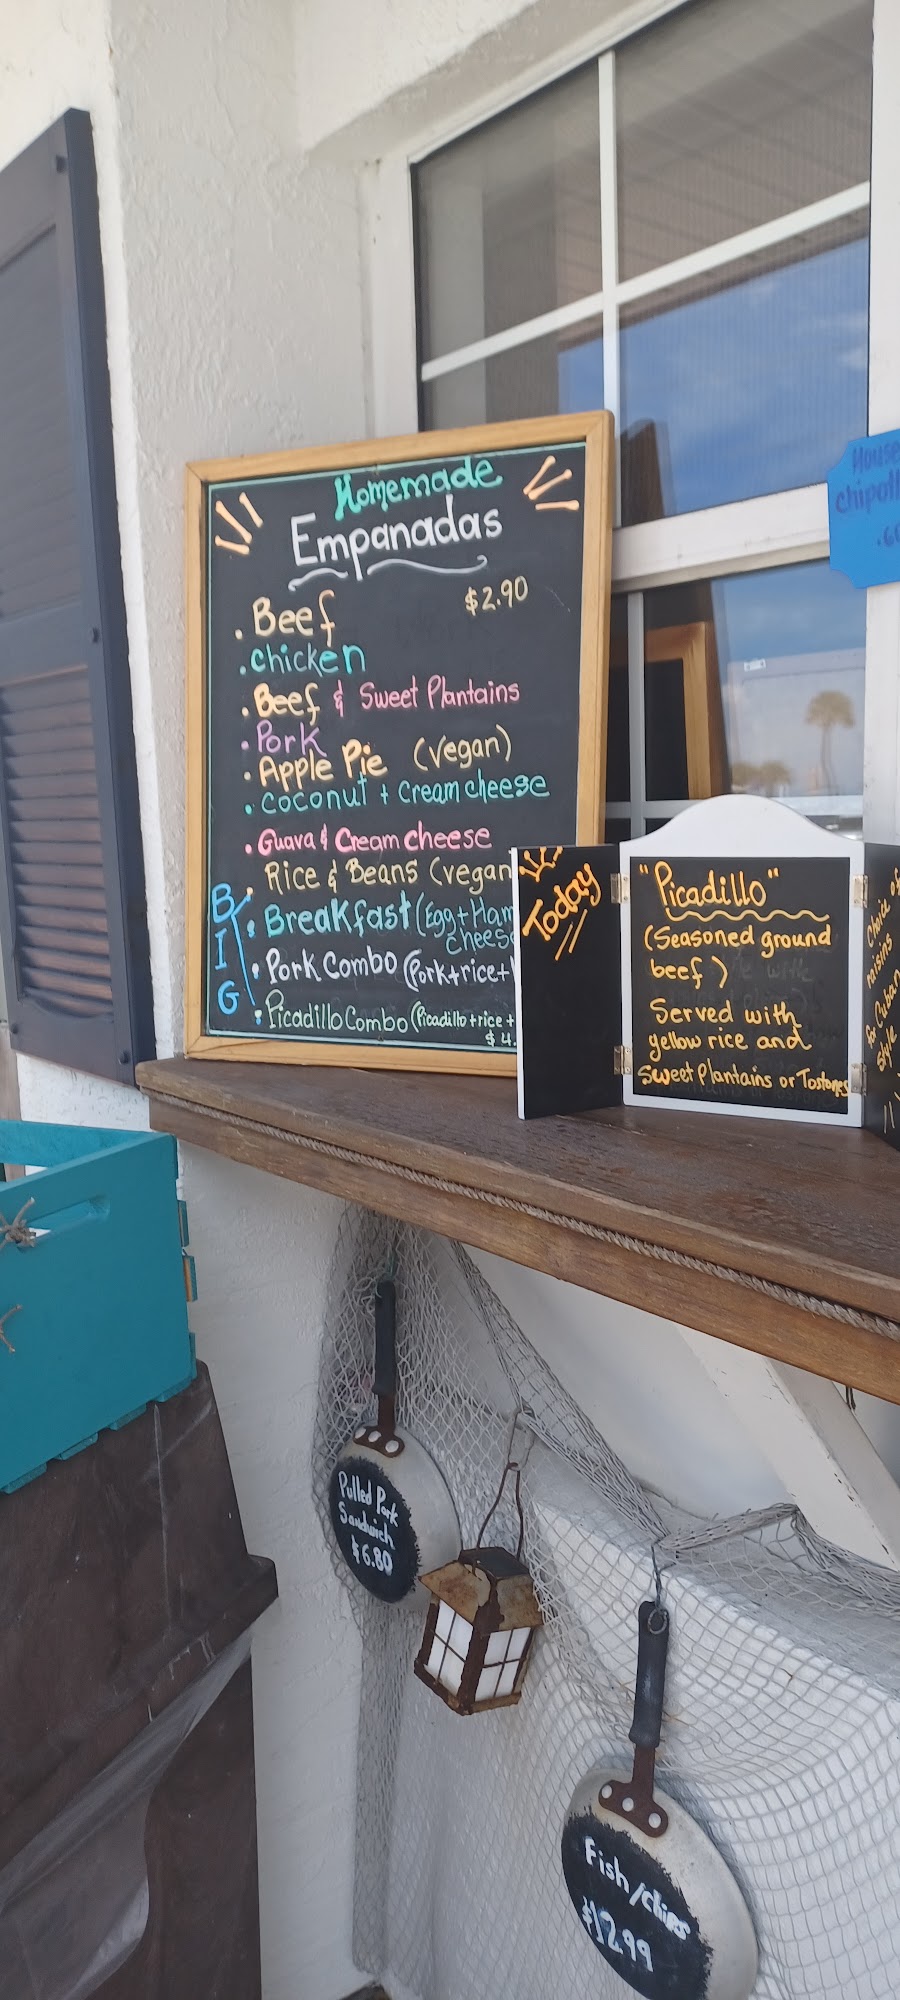 Homemade
Empanadas
. Beef $2.90
. chicken
. Beef & Sweet Plantains
. Pork
. Apple Pie (vegan)
. coconut + Cream cheese
. Guava & Cream cheese
Rice & Beans (vegan
BIG
. Breakfast (Egg + Ham
cheese
. Pork Combo (Pork + rice +
. Picadillo Combo (Picadillo + rice +
$4.
Today
"Picadillo"
(Seasoned ground
beef)
Served with
yellow rice and
Sweet Plantains or Tostones
Choice of
raisins
for Cuban
Style
House
chipotl
.60
Pulled Pork
Sandwich
$6.80
Fish/chips
$12.99